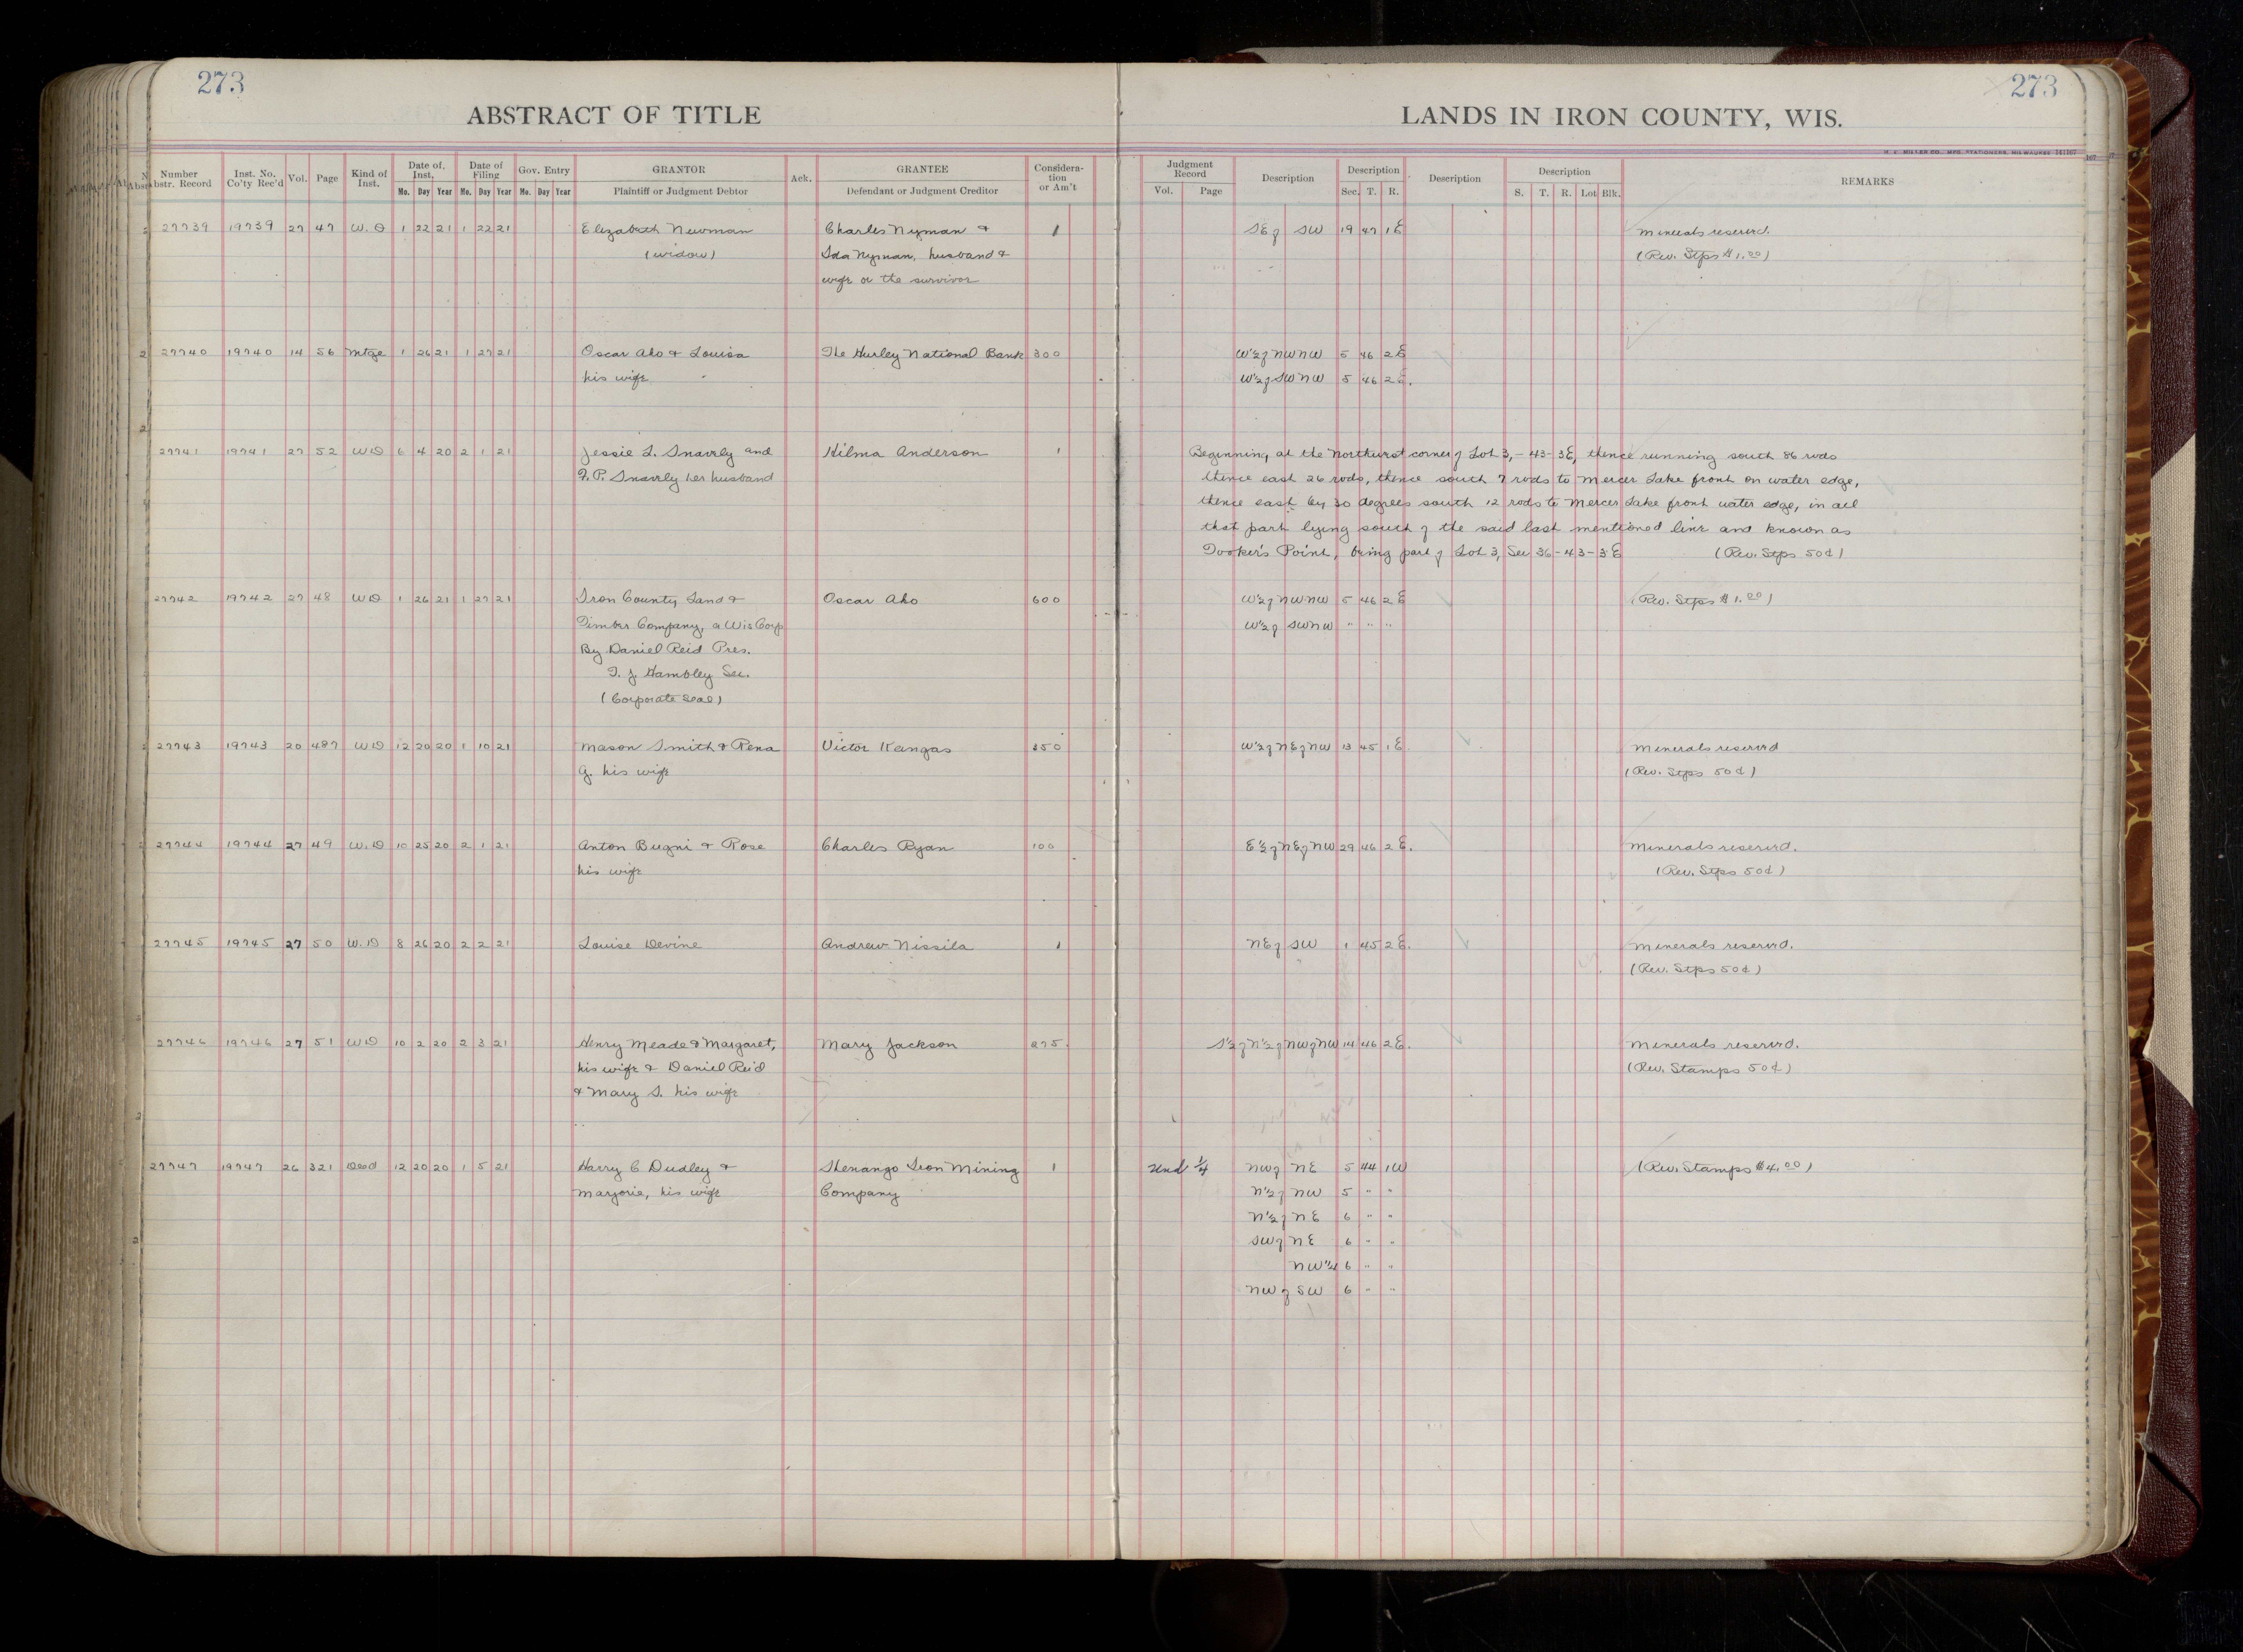 273
273
ABSTRACT OF TITLE
LANDS IN IRON COUNTY, WIS.
Number Abstr. Record Inst. No. Co'ty Rec'd Vol. Page Kind of Inst. Date of Inst. Mo. Day Year Date of Filing Mo. Day Year Gov. Entry Mo. Day Year GRANTOR Plaintiff or Judgment Debtor Ack. GRANTEE Defendant or Judgment Creditor Considera-tion or Am't Judgment Record Vol. Page Description Description Sec. T. R. Description Description S. T. R. Lot Blk. REMARKS
27739 19739 27 47 W. D 1 22 21 1 22 21 Elizabeth Newman Charles Nyman & 1 SE of SW 19 47 1 E Minerals reserved.
(widow) Ida Nyman, husband & (Rev. Stps $1.00)
wife or the survivor
27740 19740 14 56 Mtge 1 26 21 1 27 21 Oscar Aho & Louisa The Hurley National Bank 300 W½ of NW NW 5 46 2 E
his wife W½ of SW NW 5 46 2 E.
27741 19741 27 52 WD 6 4 20 2 1 21 Jessie L. Snavely and Hilma Anderson 1 Beginning at the Northwest corner of Lot 3, - 43 - 3E, thence running south 86 rods
F. P. Snavely her husband thence east 26 rods, thence south 7 rods to Mercer Lake front on water edge,
thence east by 30 degrees south 12 rods to Mercer Lake front water edge, in all
that part lying south of the said last mentioned line and known as
Tooker's Point, being part of Lot 3, Sec 36 - 43 - 3 E (Rev. Stps 50¢)
27742 19742 27 48 WD 1 26 21 1 27 21 Iron County Land & Oscar Aho 600 W½ of NW NW 5 46 2 E (Rev. Stps $1.00)
Timber Company, a Wis Corp W½ of SW NW " " "
By Daniel Reid Pres.
T. J. Hambley Sec.
(Corporate Seal)
27743 19743 20 487 WD 12 20 20 1 10 21 Mason Smith & Rena Victor Kangas 350 W½ of NE of NW 13 45 1 E Minerals reserved
G. his wife (Rev. Stps 50¢)
27744 19744 27 49 W. D 10 25 20 2 1 21 Anton Bugni & Rose Charles Ryan 100 E½ of NE of NW 29 46 2 E. Minerals reserved.
his wife (Rev. Stps 50¢)
27745 19745 27 50 W. D 8 26 20 2 2 21 Louise Devine Andrew Nissila 1 NE of SW 1 45 2 E. Minerals reserved.
(Rev. Stps 50¢)
27746 19746 27 51 WD 10 2 20 2 3 21 Henry Meade & Margaret, Mary Jackson 275. S½ of N½ of NW of NW 14 46 2 E. Minerals reserved.
his wife & Daniel Reid (Rev. Stamps 50¢)
& Mary S. his wife
27747 19747 26 321 Deed 12 20 20 1 5 21 Harry C Dudley & Shenango Iron Mining 1 Und ¼ NW of NE 5 44 1 W (Rev. Stamps $4.00)
Marjorie, his wife Company N½ of NW 5 " "
N½ of NE 6 " "
SW of NE 6 " "
NW ¼ 6 " "
NW of SW 6 " "